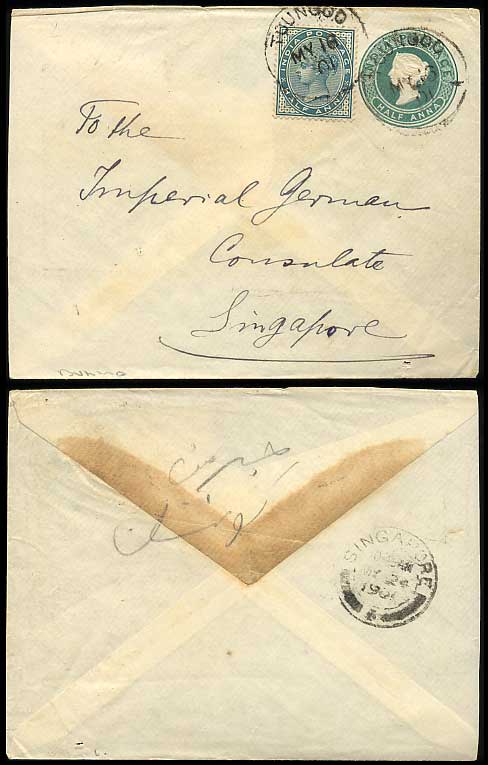 TOUNGOO
MY 16
01
INDIA POSTAGE
HALF ANNA
TOUNGOO
INDIA POSTAGE
HALF ANNA
To the
Imperial German
Consulate
Singapore
SINGAPORE
MY 24
1901